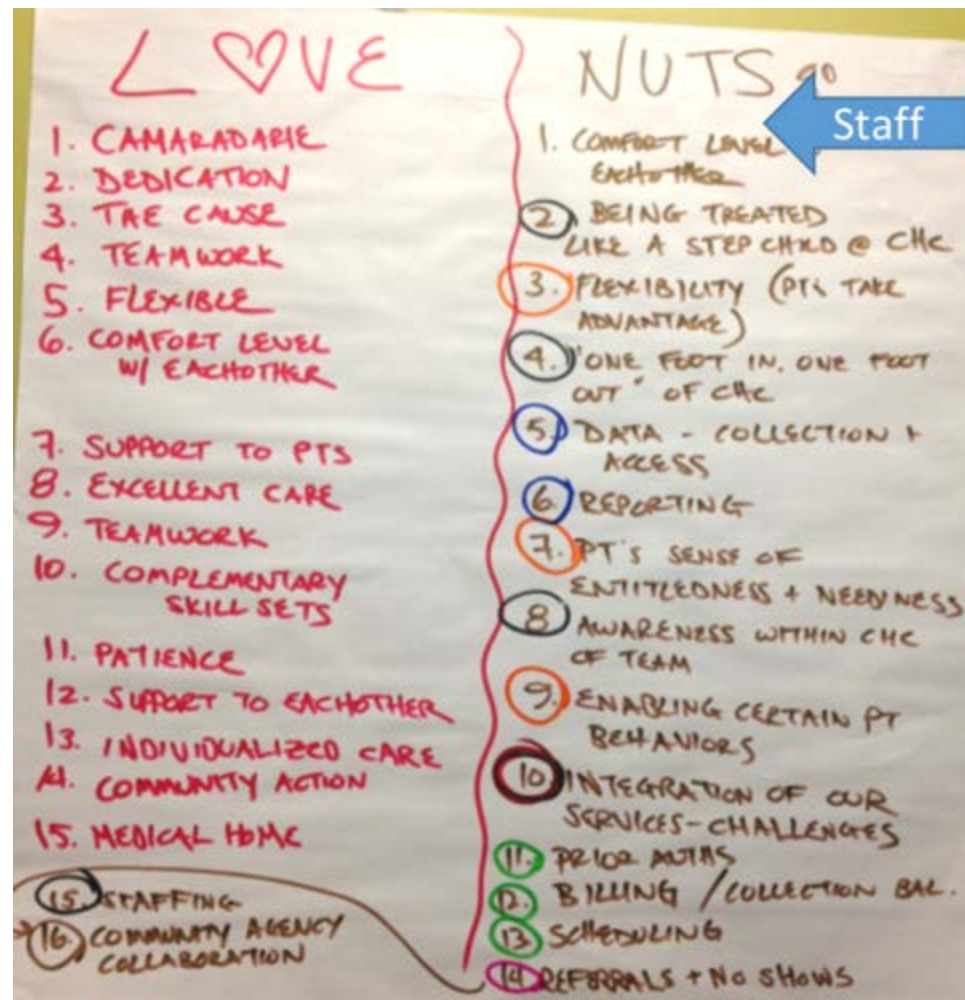 LOVE
1. CAMARADARIE
2. DEDICATION
3. THE CAUSE
4. TEAMWORK
5. FLEXIBLE
6. COMFORT LEVEL
W/ EACHOTHER
7. SUPPORT TO PTS
8. EXCELLENT CARE
9. TEAMWORK
10. COMPLEMENTARY
SKILL SETS
11. PATIENCE
12. SUPPORT TO EACHOTHER
13. INDIVIDUALIZED CARE
14. COMMUNITY ACTION
15. MEDICAL HOME
NUTS
Staff
1. COMFORT LEVEL
EACHOTHER
2. BEING TREATED
LIKE A STEP CHILD @ CHC
3. FLEXIBILITY (PTS TAKE
ADVANTAGE)
4. "ONE FOOT IN, ONE FOOT
OUT" OF CHC
5. DATA - COLLECTION +
ACCESS
6. REPORTING
7. PT'S SENSE OF
ENTITLEDNESS + NEEDYNESS
8 AWARENESS WITHIN CHC
OF TEAM
9. ENABLING CERTAIN PT
BEHAVIORS
10 INTEGRATION OF OUR
SERVICES - CHALLENGES
11. PRIOR AUTHS
12. BILLING / COLLECTION BAL.
13 SCHEDULING
14 REFERRALS + NO SHOWS
15. STAFFING
16. COMMUNITY AGENCY
COLLABORATION